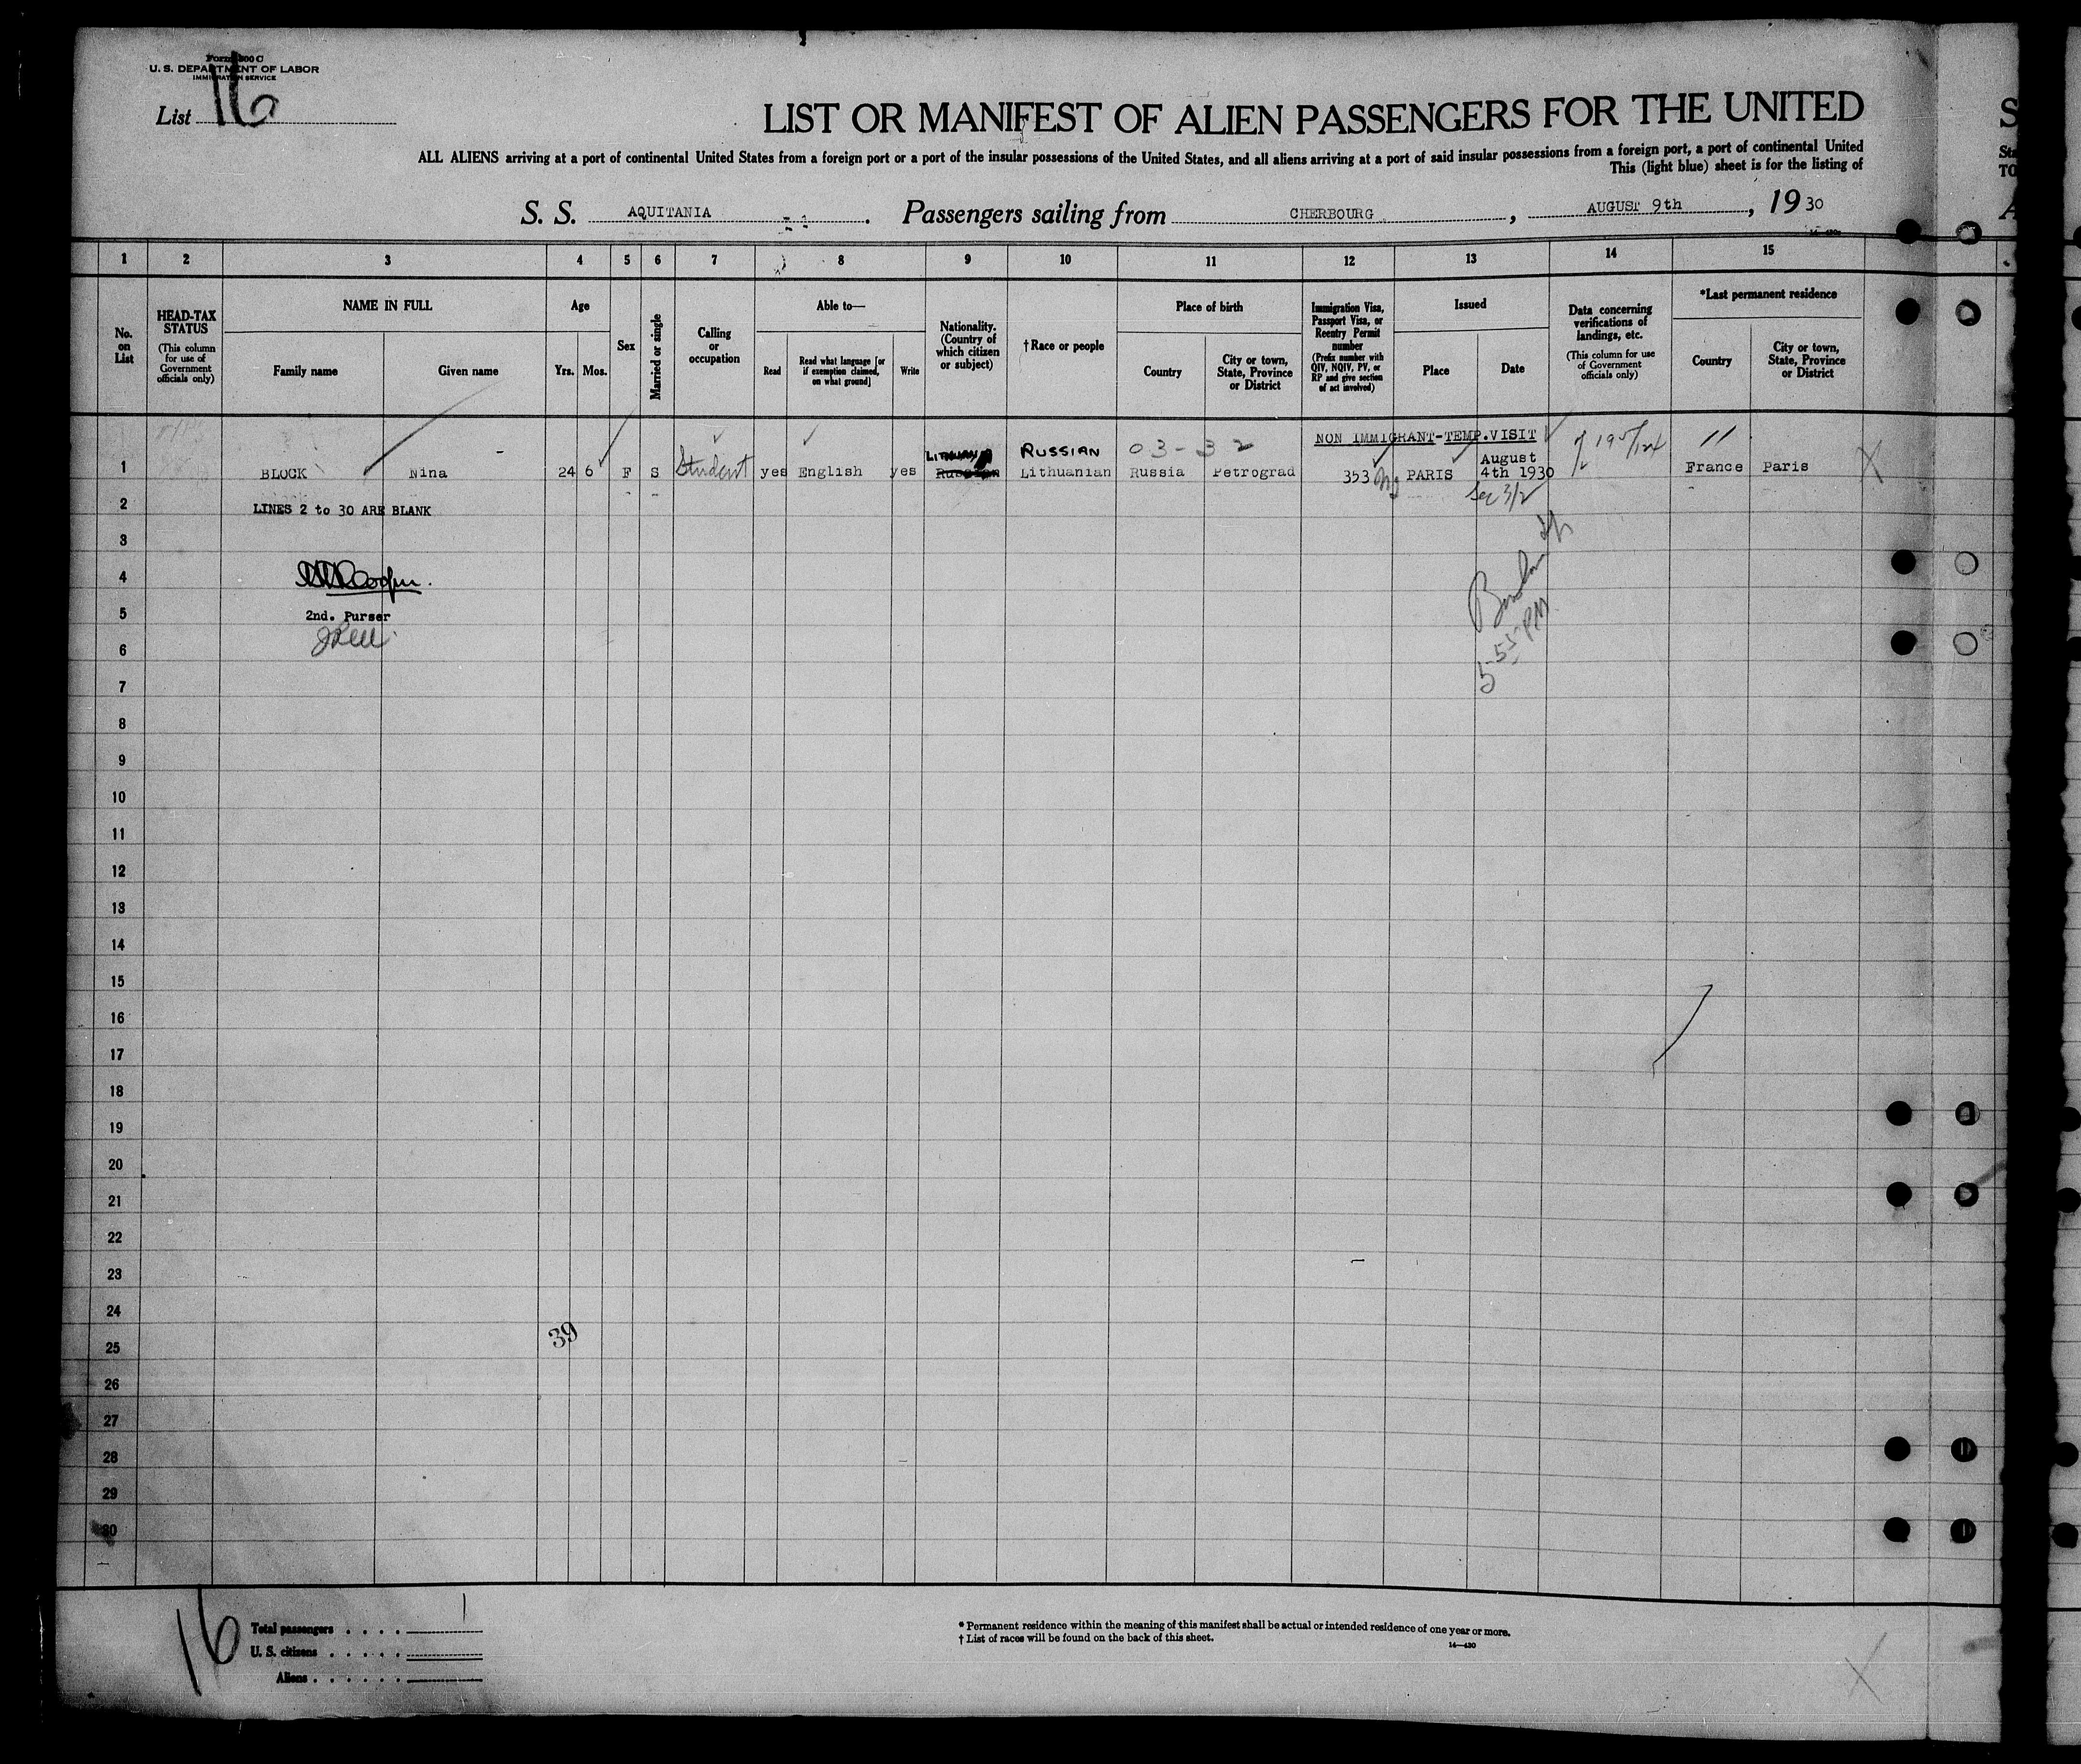 Form 500 C
U. S. DEPARTMENT OF LABOR
IMMIGRATION SERVICE
List 16
LIST OR MANIFEST OF ALIEN PASSENGERS FOR THE UNITED
ALL ALIENS arriving at a port of continental United States from a foreign port or a port of the insular possessions of the United States, and all aliens arriving at a port of said insular possessions from a foreign port, a port of continental United
This (light blue) sheet is for the listing of
S. S. AQUITANIA . Passengers sailing from CHERBOURG , AUGUST 9th , 1930
1 2 3 4 5 6 7 8 9 10 11 12 13 14 15
No. on List
HEAD-TAX STATUS
(This column for use of Government officials only)
NAME IN FULL
Family name
Given name
Age
Yrs.
Mos.
Sex
Married or single
Calling or occupation
Able to—
Read
Read what language [or if exemption claimed, on what ground]
Write
Nationality. (Country of which citizen or subject)
†Race or people
Place of birth
Country
City or town, State, Province or District
Immigration Visa, Passport Visa, or Reentry Permit number
(Prefix number with QIV, NQIV, PV, or RP and give section of act involved)
Issued
Place
Date
Data concerning verifications of landings, etc.
(This column for use of Government officials only)
*Last permanent residence
Country
City or town, State, Province or District
LITHUANIA RUSSIAN 03-32 NON IMMIGRANT-TEMP.VISIT
1 BLOCK Nina 24 6 F S Student yes English yes Russian Lithuanian Russia Petrograd 353 PARIS August 4th 1930 France Paris
Sec 3/2
2 LINES 2 to 30 ARE BLANK
3
4
5 2nd. Purser
5-55 PM
6
7
8
9
10
11
12
13
14
15
16
17
18
19
20
21
22
23
24
39
25
26
27
28
29
30
16
Total passengers . . . . 1
U. S. citizens . . . . .
Aliens . . . . . .
* Permanent residence within the meaning of this manifest shall be actual or intended residence of one year or more.
† List of races will be found on the back of this sheet.
14—430